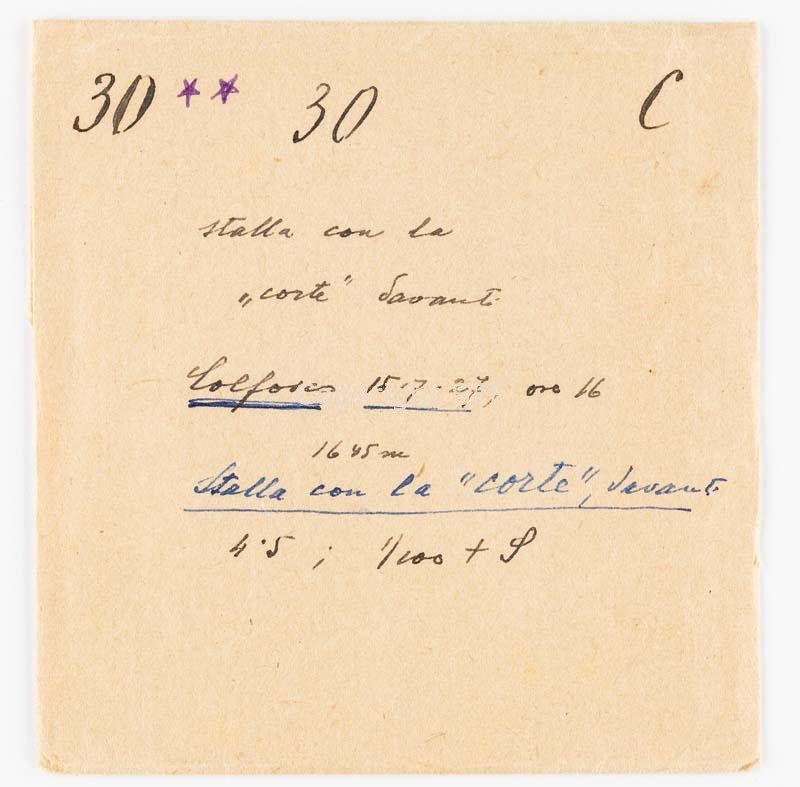 30 ** 30 C
stalla con la
„corte" davanti
Colfosco 15·7·27, ore 16
1645 m
Stalla con la "corte", davanti
4·5 ; 1/100 + S